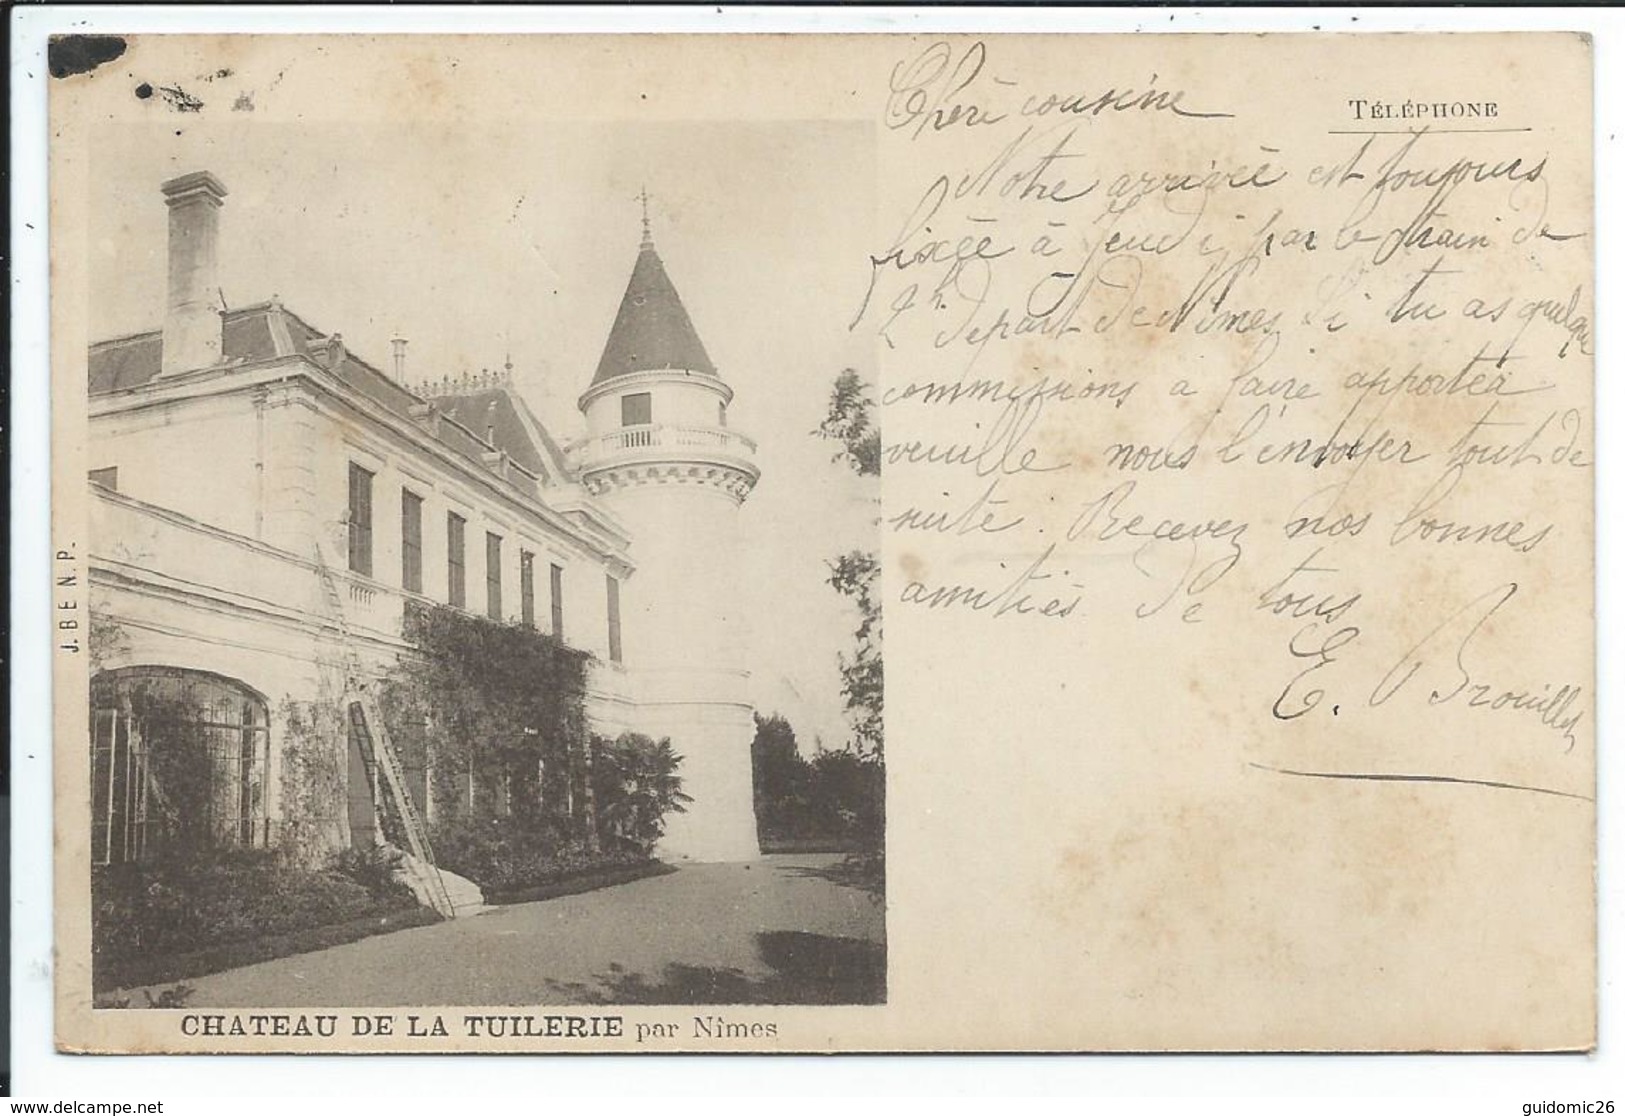 Chère cousine
TÉLÉPHONE
Notre arrivée est toujours
fixée à Jeudi par le train de
2h départ de Nimes. Si tu as quelque
commissions a faire apporter
veuille nous l'envoyer tout de
suite. Recevez nos bonnes
amitiés de tous
E. Brouillet
J. BE N. P.
CHATEAU DE LA TUILERIE par Nîmes
www.delcampe.net
guidomic26